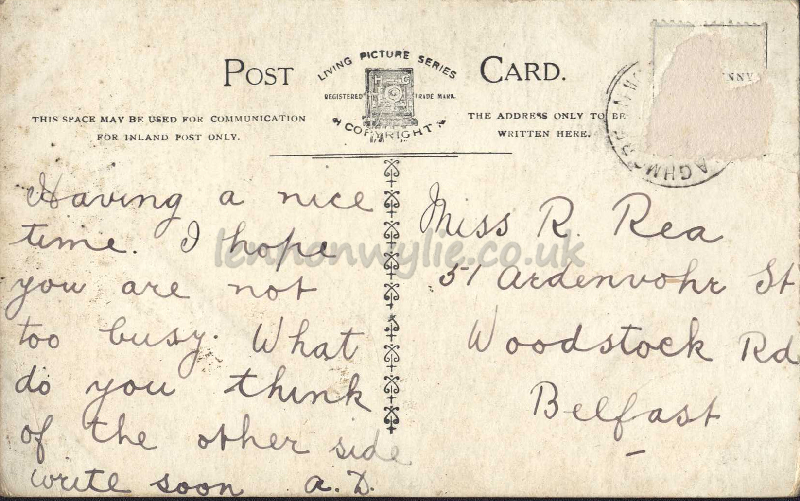 POST CARD.
LIVING PICTURE SERIES
REGISTERED TRADE MARK
COPYRIGHT
THIS SPACE MAY BE USED FOR COMMUNICATION
FOR INLAND POST ONLY.
THE ADDRESS ONLY TO BE
WRITTEN HERE.
NNY
Having a nice
time. I hope
you are not
too busy. What
do you think
of the other side
write soon a.D.
Miss R. Rea
51 Ardenvohr St
Woodstock Rd
Belfast
lennonwylie.co.uk